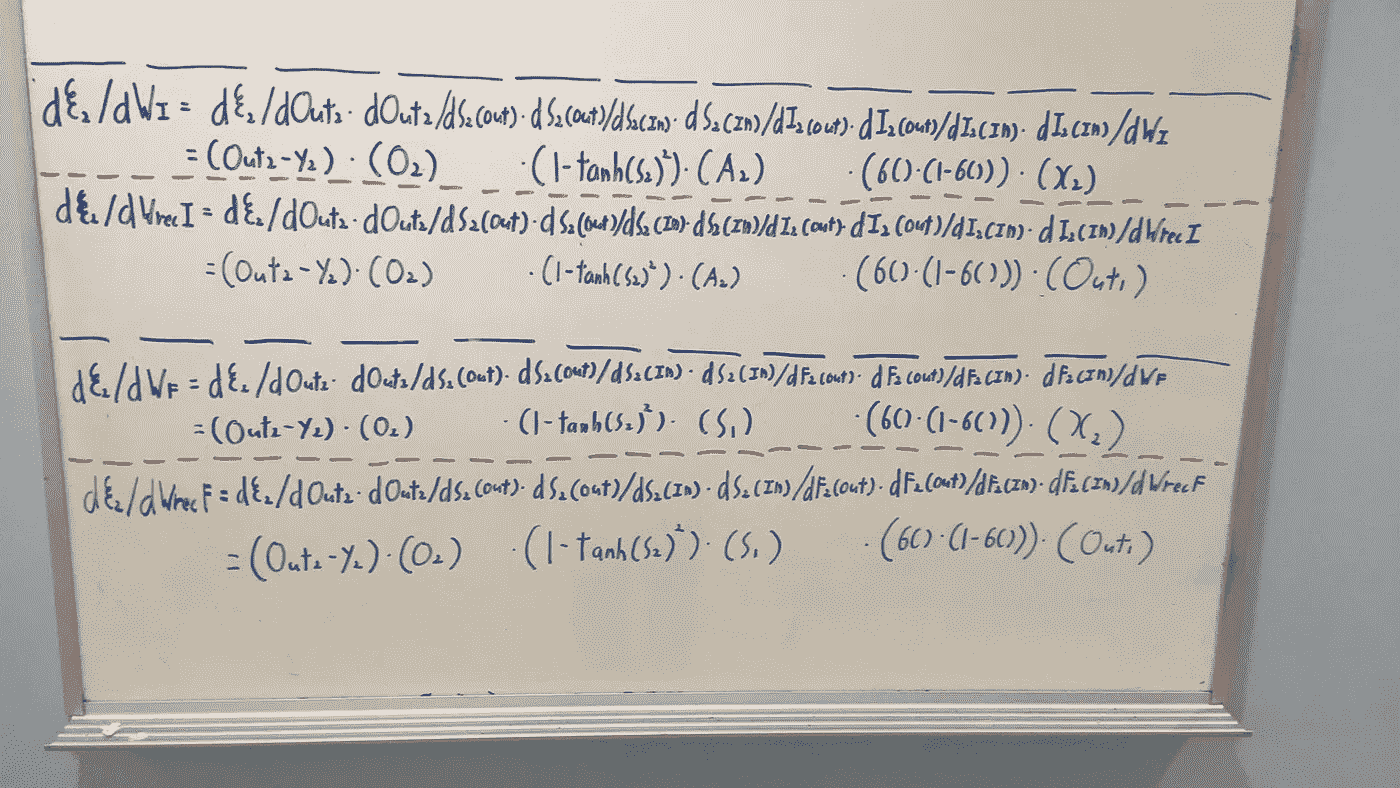 dξ₂/dWI = dξ₂/dOut₂ · dOut₂/dS₂(out) · dS₂(out)/dS₂(In) · dS₂(IN)/dI₂(out) · dI₂(out)/dI₂(IN) · dI₂(IN)/dWI
= (Out₂-Y₂) · (O₂) · (1-tanh(S₂)²) · (A₂) · (6() · (1-6())) · (X₂)
dξ₂/dWrecI = dξ₂/dOut₂ · dOut₂/dS₂(Out) · dS₂(out)/dS₂(IN) · dS₂(IN)/dI₂(out) · dI₂(out)/dI₂(IN) · dI₂(IN)/dWrecI
= (Out₂-Y₂) · (O₂) · (1-tanh(S₂)²) · (A₂) · (6() · (1-6())) · (Out₁)
dξ₂/dWF = dξ₂/dOut₂ · dOut₂/dS₂(out) · dS₂(out)/dS₂(IN) · dS₂(IN)/dF₂(out) · dF₂(out)/dF₂(IN) · dF₂(IN)/dWF
= (Out₂-Y₂) · (O₂) · (1-tanh(S₂)²) · (S₁) · (6() · (1-6())) · (X₂)
dξ₂/dWrecF = dξ₂/dOut₂ · dOut₂/dS₂(out) · dS₂(out)/dS₂(In) · dS₂(IN)/dF₂(out) · dF₂(out)/dF₂(IN) · dF₂(IN)/dWrecF
= (Out₂-Y₂) · (O₂) · (1-tanh(S₂)²) · (S₁) · (6() · (1-6())) · (Out₁)